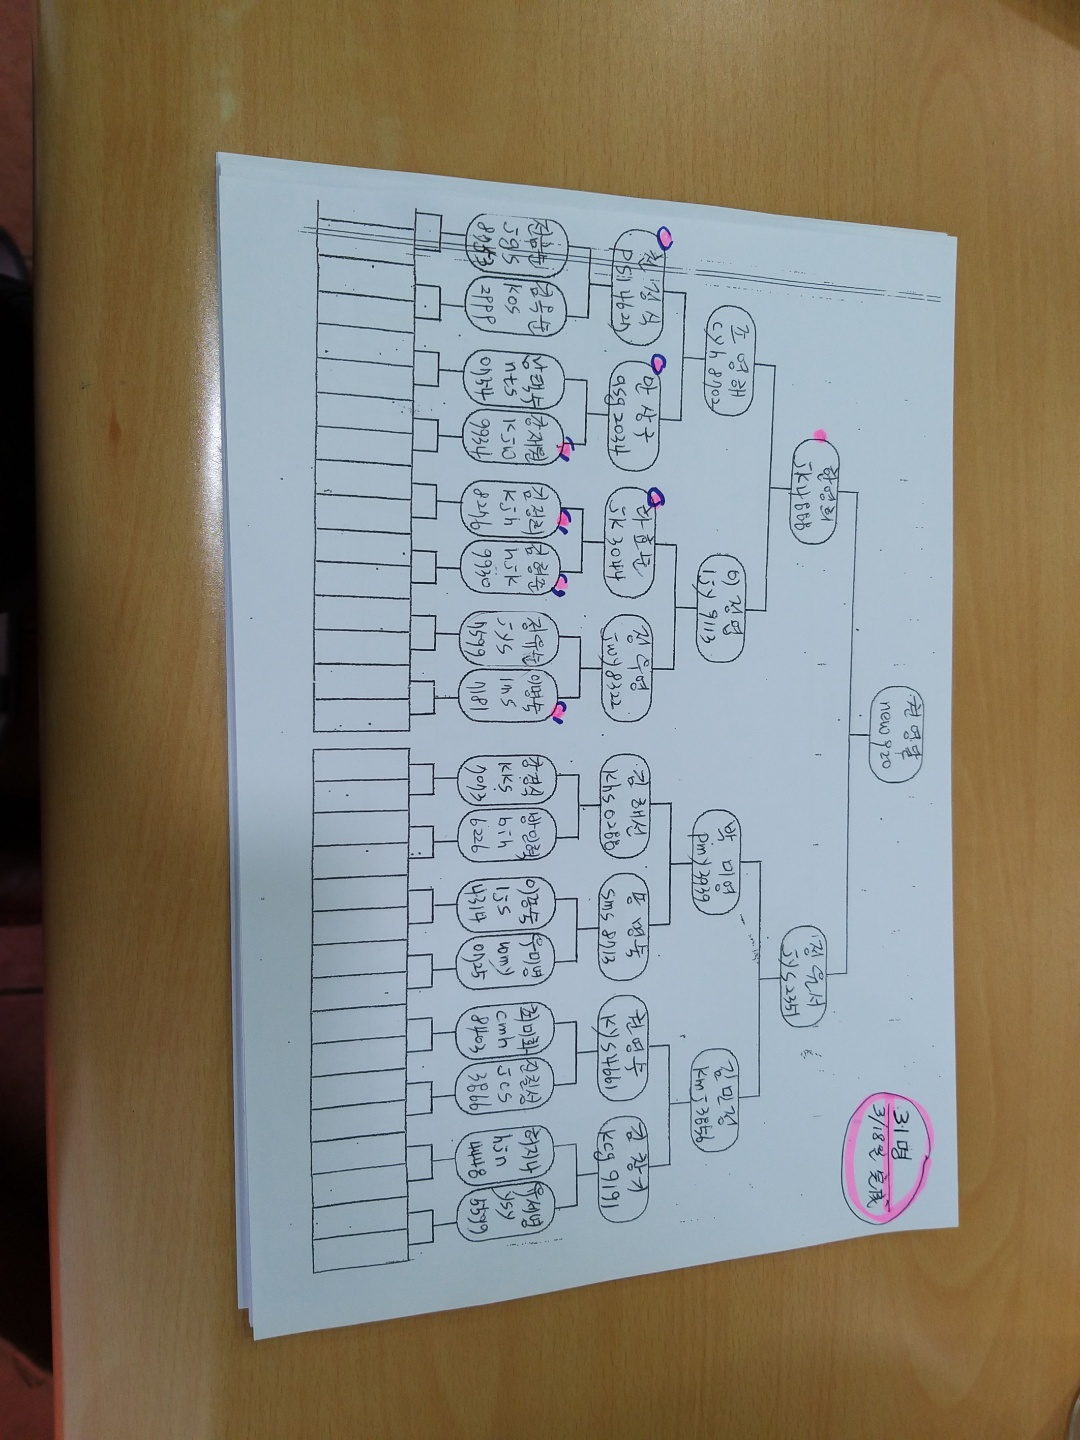 권영달
new920
31명
3/18일 完成
한영희
jk4888
정유서
jys2351
조영해
cyh8702
이정엽
ljy9113
박미영
pmy3939
김민정
kmj3856
정식
만상구
asg2034
jk3044
정우영
jwy8322
김해선
khs0288
명숙
sms8713
권영수
kys4661
김창기
kcg9191
jgs
8753
김옥순
kos
2999
남택수
nts
0754
강재원
kjw
9934
김정희
kjh
8276
김형준
hjk
9930
정유순
jys
7599
이명숙
lms
7181
강경식
kks
7073
방인혁
bih
6226
이종숙
ljs
4314
우미영
wmy
0725
최미화
cmh
8403
진칠성
jcs
3866
허지나
hjn
4448
유세영
ysy
5579